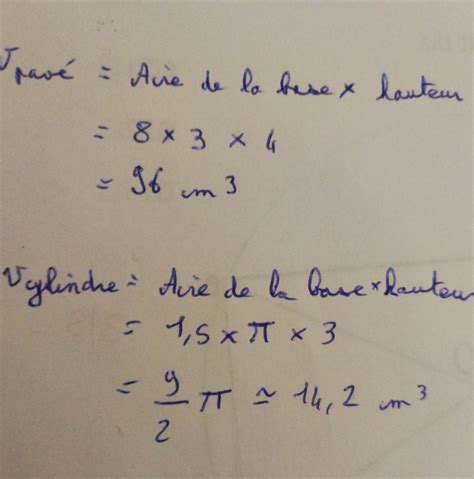 Vpavé = Aire de la base × hauteur
= 8 × 3 × 4
= 96 cm³
Vcylindre = Aire de la base × hauteur
= 1,5 × π × 3
= 9/2 π ≃ 14,2 cm³